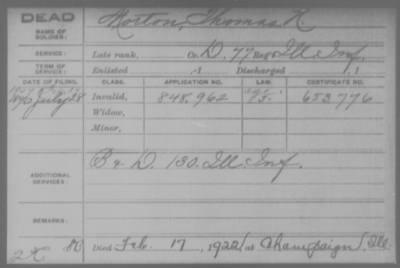 DEAD
NAME OF SOLDIER: Morton, Thomas H.
SERVICE: Late rank, Co. D, 77 Reg't Ill. Inf.
TERM OF SERVICE: Enlisted , 1 Discharged , 1
DATE OF FILING. CLASS. APPLICATION NO. LAW. CERTIFICATE NO.
1890 July 28 Invalid, 848,962 653,776
Widow,
Minor,
ADDITIONAL SERVICES: B & D. 130. Ill. Inf.
REMARKS:
Died Feb. 17, 1922, at Champaign, Ill.